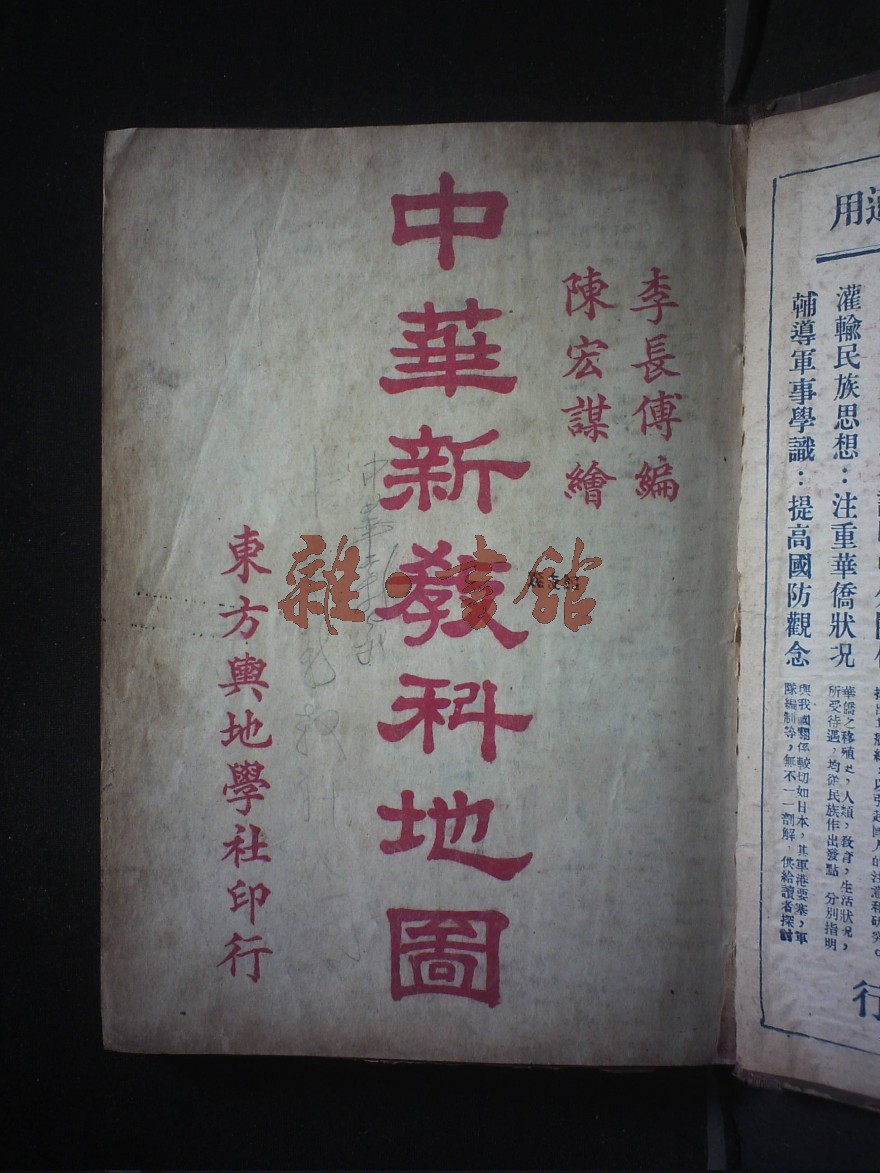 李長傅編
陳宏謀繪
中華新教科地圖
東方輿地學社印行
雜·書館
用
灌輸民族思想：注重華僑狀況
輔導軍事學識：提高國防觀念
華僑之移殖史，人類，教育，生活狀況，
所受待遇，均從民族作出發點 分別指明
與我國關係較切如日本，其軍港要塞，軍
隊編制等，無不一一剖解 供給讀者探討
行